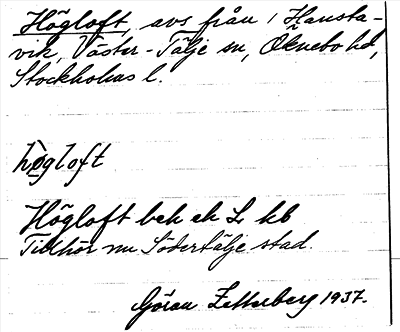 Högloft, avs från 1 Hansta-
vik, Väster-Tälje sn, Öknebo hd,
Stockholms l.
hø̀gloft
Högloft beh ek Lr kb
Tillhör nu Södertälje stad.
Göran Zetterberg 1937.